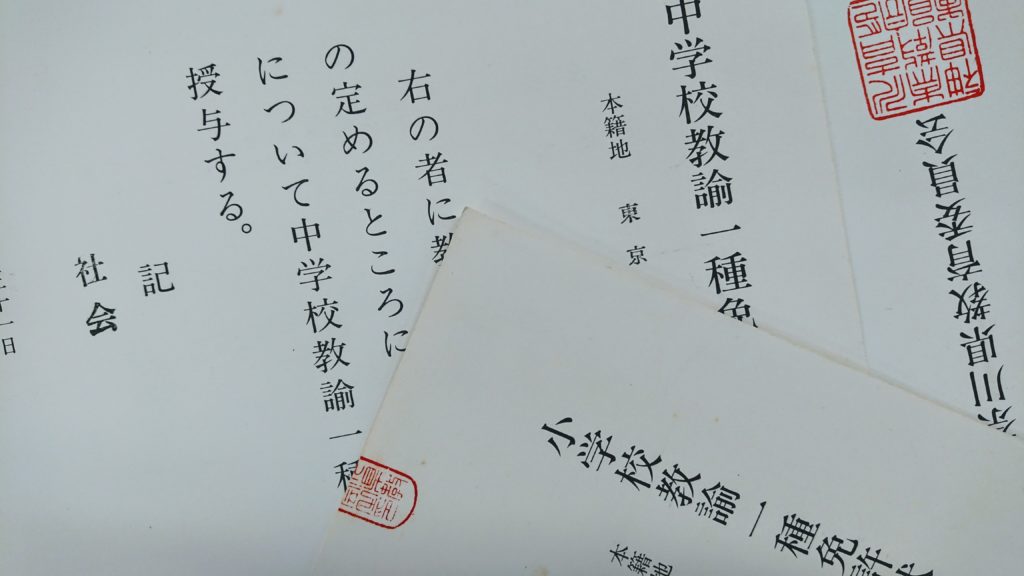 中学校教諭一種免
本籍地 東京
右の者に教
の定めるところに
について中学校教諭一種
授与する。
記
社会
十一日
小学校教諭一種免許状
本籍地
奈川県教育委員会